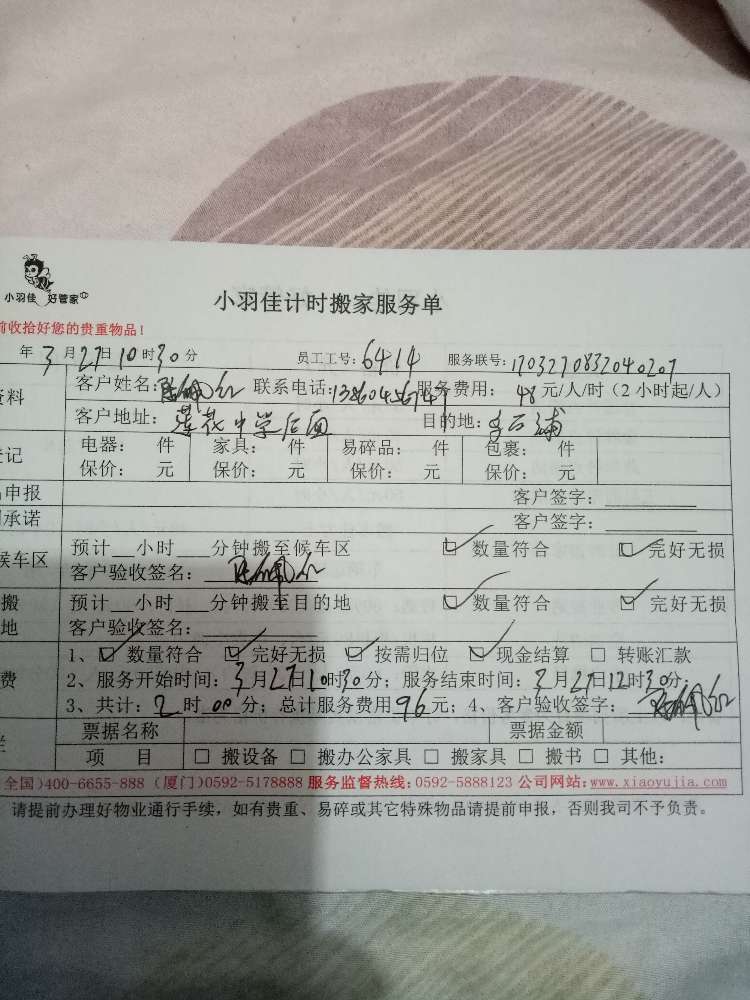 小羽佳 好管家
小羽佳计时搬家服务单
前收拾好您的贵重物品！
年3月27日10时30分 员工工号：6414 服务联号：1703270832040207
资料 客户姓名： 联系电话：13860456747 服务费用：48元/人/时（2小时起/人）
客户地址：莲花中学后面 目的地：
记 电器： 件 家具： 件 易碎品： 件 包裹： 件
保价： 元 保价： 元 保价： 元 保价： 元
申报 客户签字：
承诺 客户签字：
候车区 预计 小时 分钟搬至候车区 数量符合 完好无损
客户验收签名：
搬 预计 小时 分钟搬至目的地 数量符合 完好无损
地 客户验收签名：
1、 数量符合 完好无损 按需归位 现金结算 转账汇款
费 2、服务开始时间：3月27日10时30分；服务结束时间：3月27日12时30分；
3、共计：2时00分；总计服务费用96元；4、客户验收签字：
票据名称 票据金额
项 目 搬设备 搬办公家具 搬家具 搬书 其他：
全国)400-6655-888 (厦门)0592-5178888 服务监督热线:0592-5888123 公司网站:www.xiaoyujia.com
请提前办理好物业通行手续，如有贵重、易碎或其它特殊物品请提前申报，否则我司不予负责。